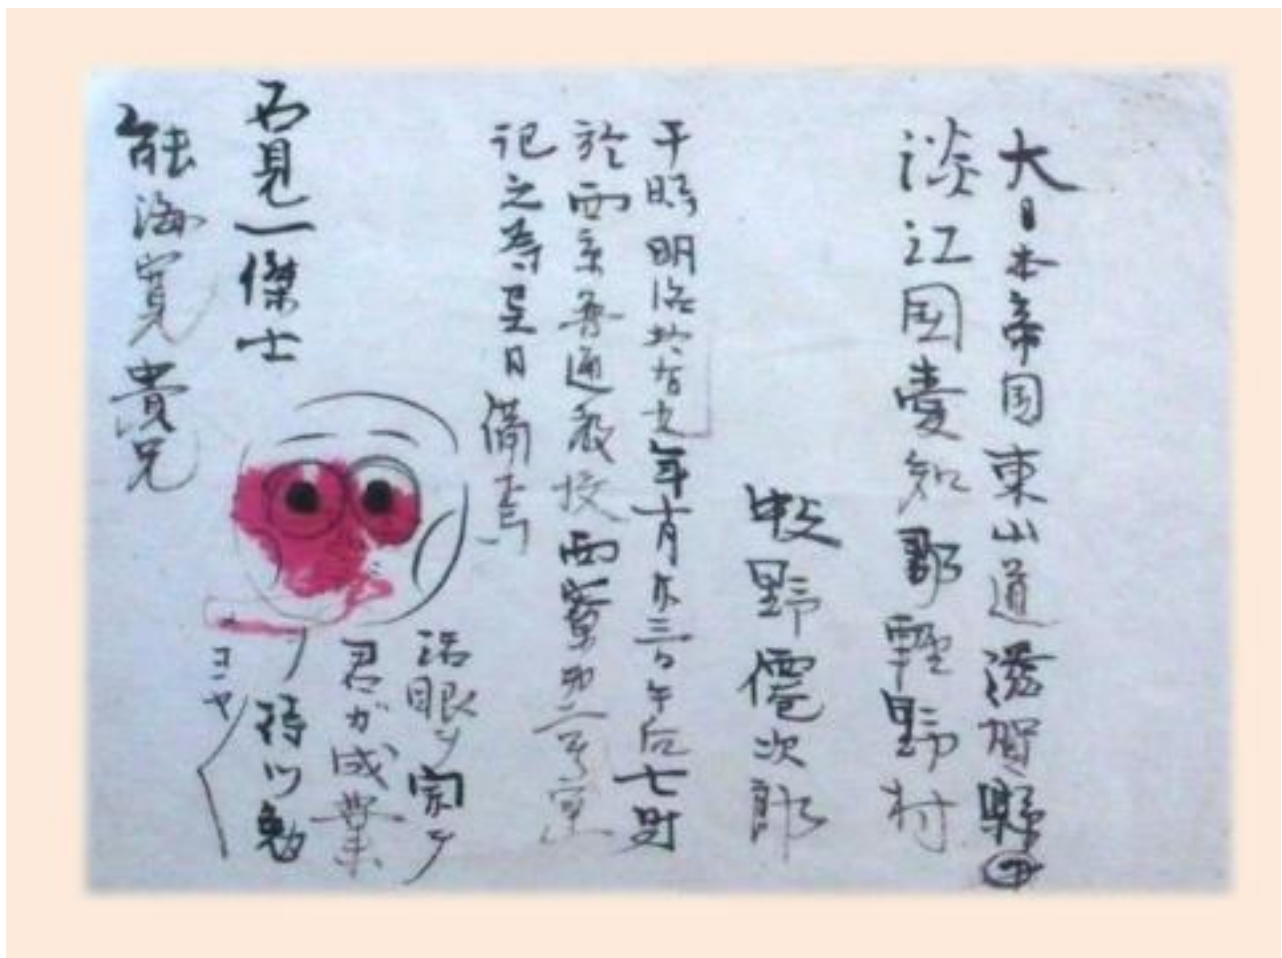 大日本帝国東山道滋賀縣
淡江国愛知郡軽野村
野僊次郎
干時明治拾有九年十月廿三日午后七時
於西京普通教校西寮第二号室
記之寿呈日備忘
石見一傑士
能海寛貴兄
活眼ヲ開ク
君ガ成業
ノ
コヤ